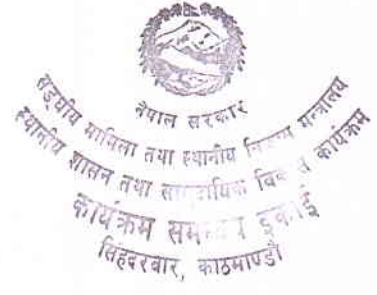 नेपाल सरकार
सङ्घीय मामिला तथा स्थानीय मन्त्रालय
स्थानीय शासन तथा सामुदायिक विकास कार्यक्रम
कार्यक्रम इकाई
सिंहदरवार, काठमाण्डौ